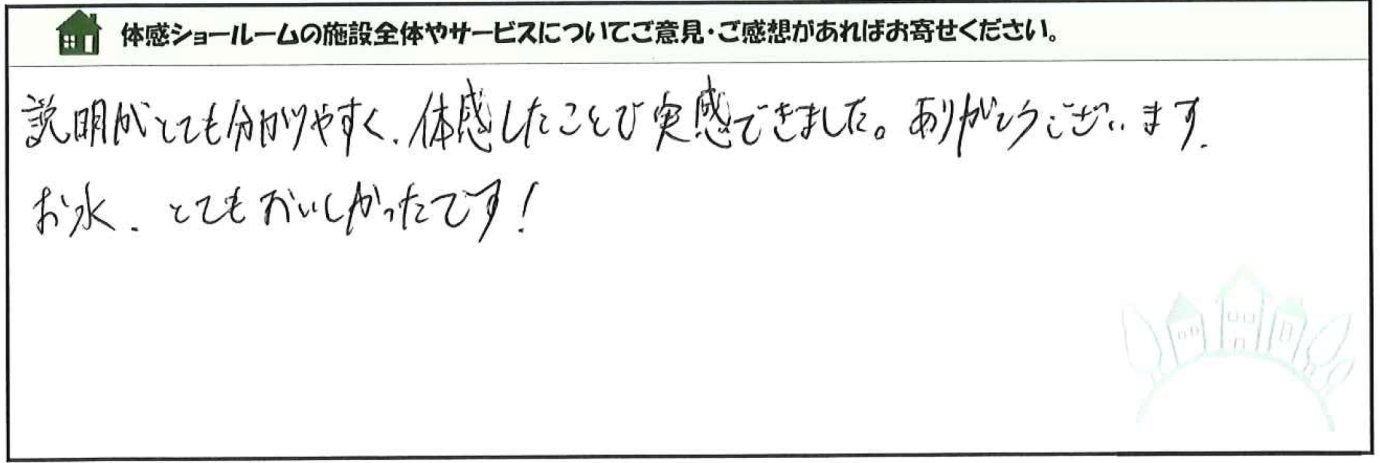 体感ショールームの施設全体やサービスについてご意見・ご感想があればお寄せください。
説明がとても分かりやすく、体感したことで実感できました。ありがとうございます。
お水、とてもおいしかったです!